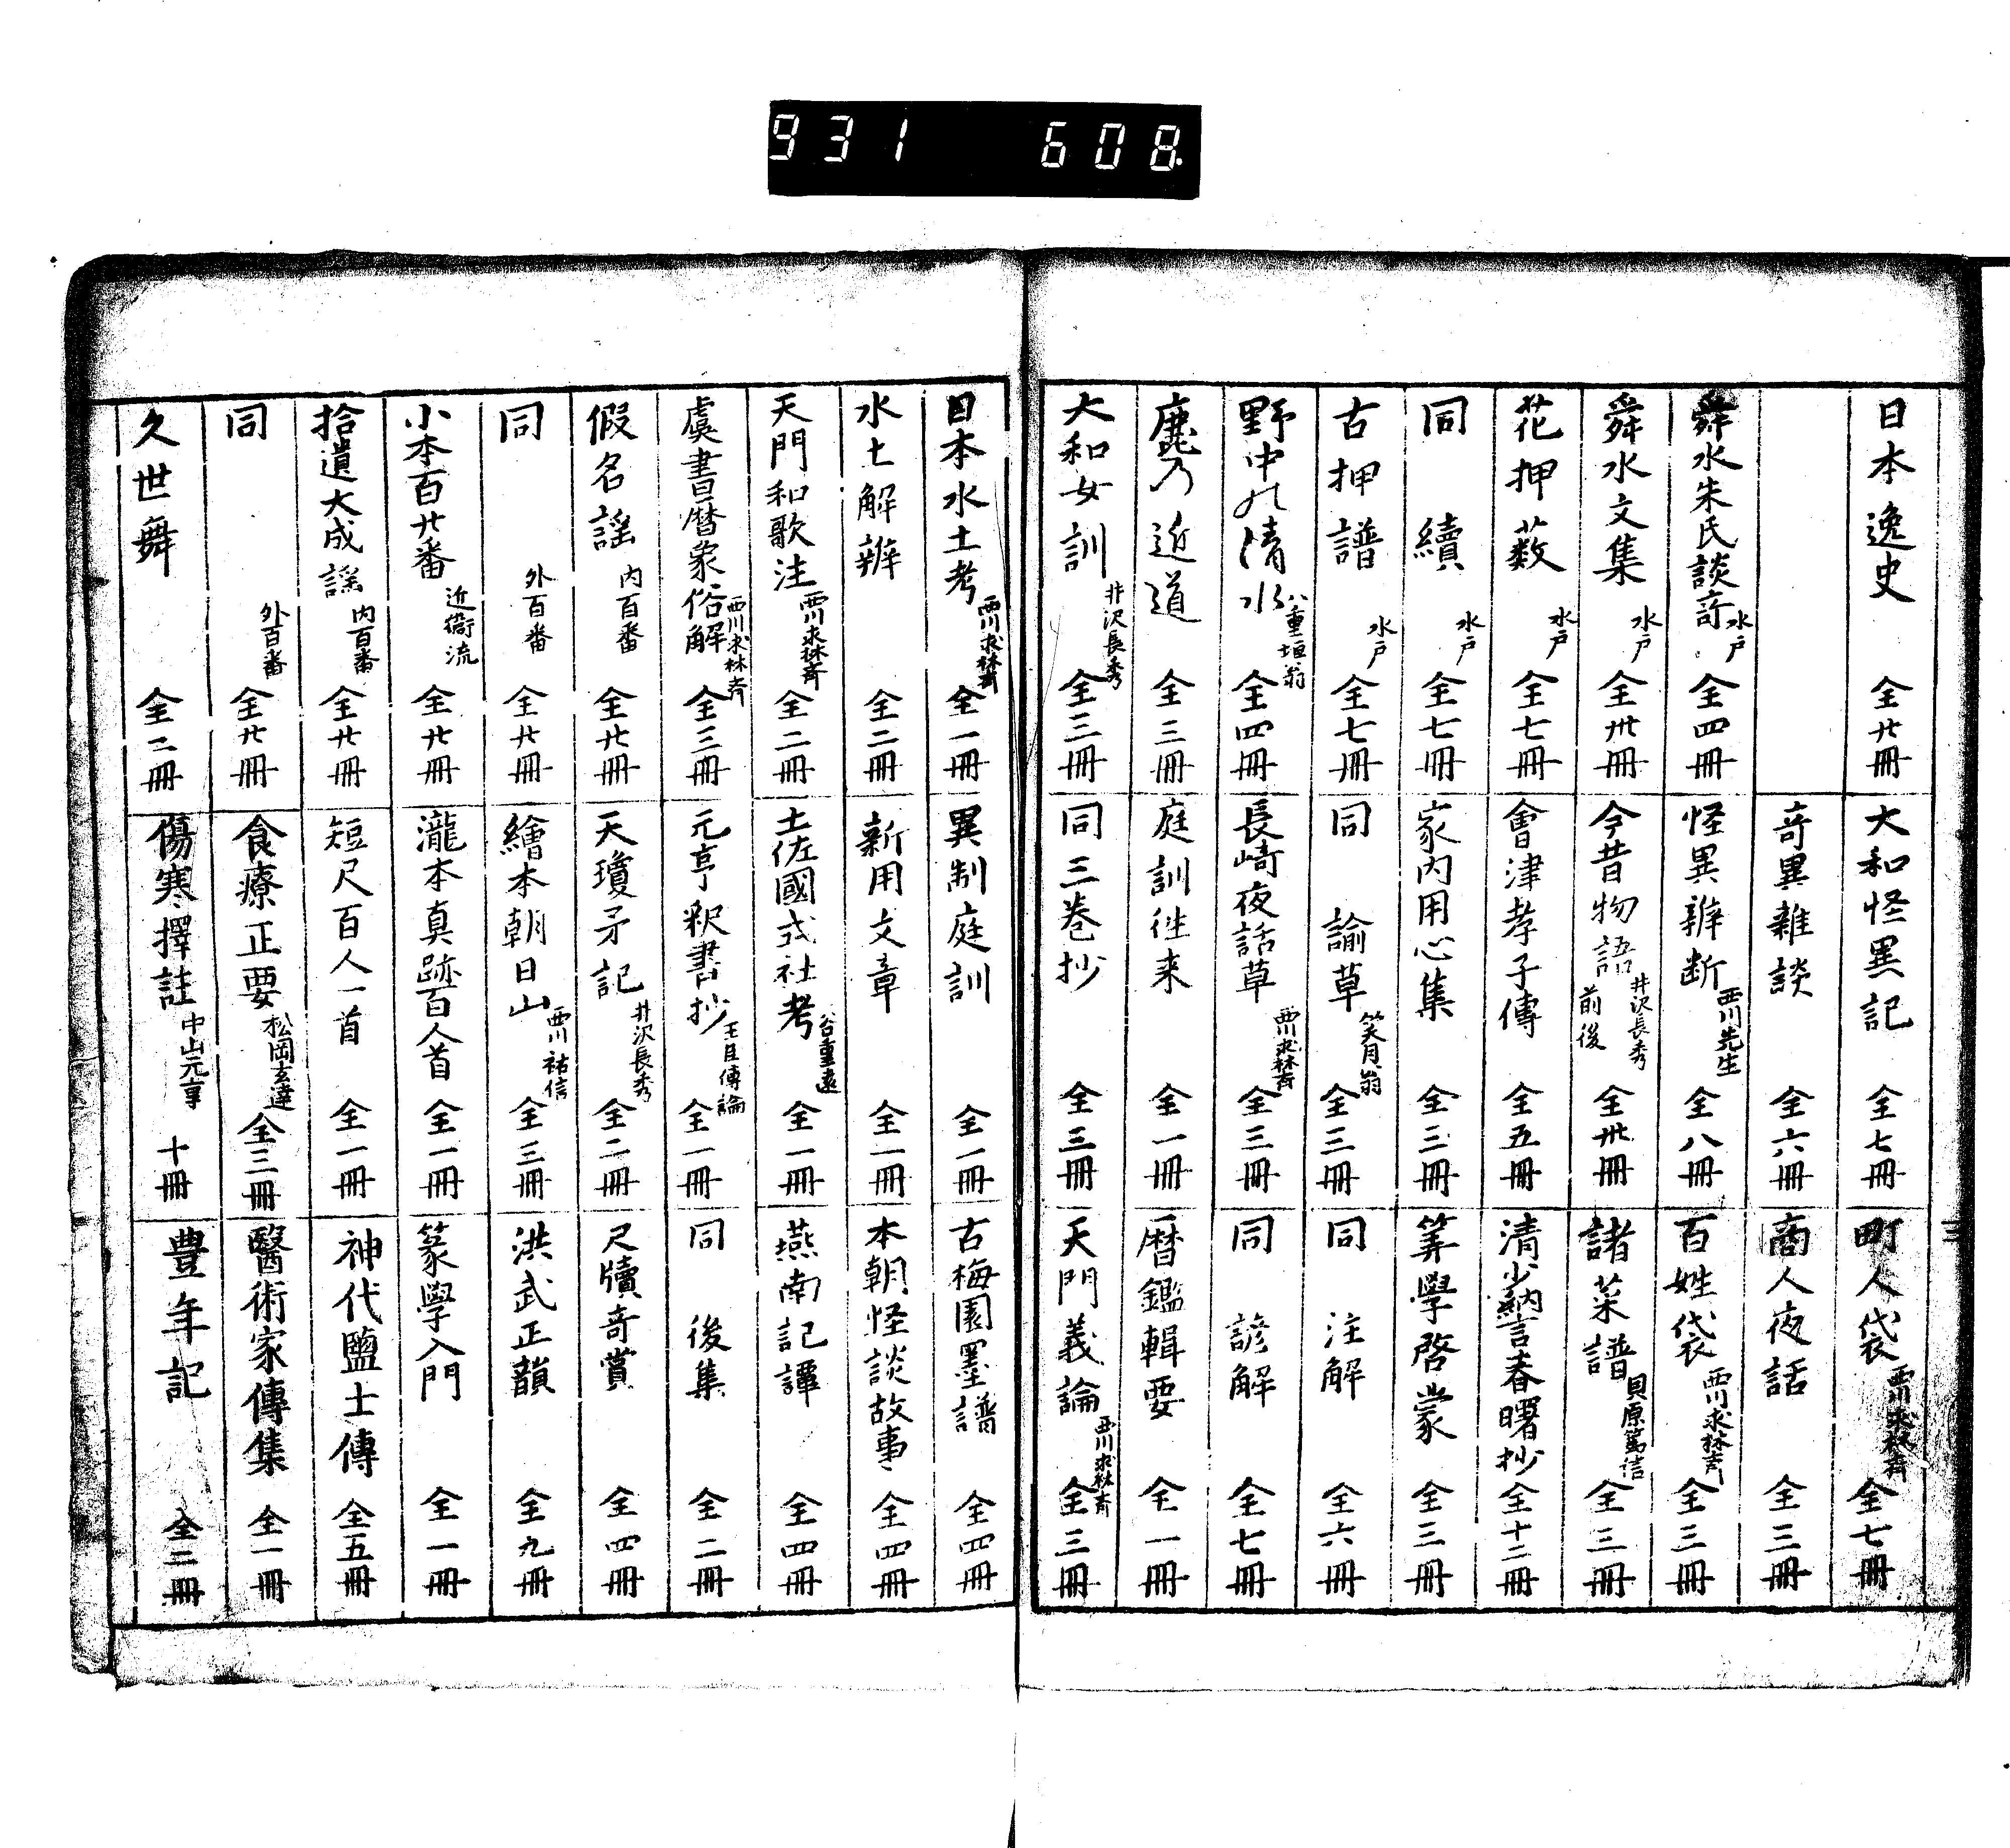 931 608
日本逸史 全廿冊
舜水朱氏談竒 水戸 全四冊
舜水文集 水戸 全卅冊
花押薮 水戸 全七冊
同 續 水戸 全七冊
古押譜 水戸 全七冊
野中の清水 八重垣翁 全四冊
麓乃近道 全三冊
大和女訓 井沢長秀 全三冊
大和怪異記 全七冊
竒異雜談 全六冊
怪異辨断 西川先生 全八冊
今昔物語 井沢長秀 前後 全卅冊
會津孝子傳 全五冊
家内用心集 全三冊
同 諭草 笑月翁 全三冊
長崎夜話草 西川求林斉 全三冊
庭訓徃来 全一冊
同三巻抄 全三冊
町人袋 西川求林斉 全七冊
商人夜話 全三冊
百姓袋 西川求林斉 全三冊
諸菜譜 貝原篤信 全三冊
清少納言春曙抄 全十二冊
筭學啓蒙 全三冊
同 注解 全六冊
同 諺解 全七冊
暦鑑輯要 全一冊
天門義論 西川求林斉 全三冊
三
日本水土考 西川求林斉 全一冊
水土解辨 全二冊
天門和歌注 西川求林斉 全二冊
虞書暦象俗解 西川求林斉 全三冊
假名謡 内百番 全廿冊
同 外百番 全廿冊
小本百廿番 近衛流 全廿冊
拾遺大成謡 内百番 全廿冊
同 外百番 全廿冊
久世舞 全二冊
異制庭訓 全一冊
新用文章 全一冊
土佐國式社考 谷重遠 全一冊
元亨釈書抄 王臣傳論 全一冊
天瓊矛記 井沢長秀 全二冊
繪本朝日山 西川祐信 全三冊
瀧本真跡百人首 全一冊
短尺百人一首 全一冊
食療正要 松岡玄達 全三冊
傷寒擇註 中山元亨 十冊
古梅園墨譜 全四冊
本朝怪談故事 全四冊
燕南記譚 全四冊
同 後集 全二冊
尺牘竒賞 全四冊
洪武正韻 全九冊
篆學入門 全一冊
神代鹽土傳 全五冊
醫術家傳集 全一冊
豊年記 全二冊